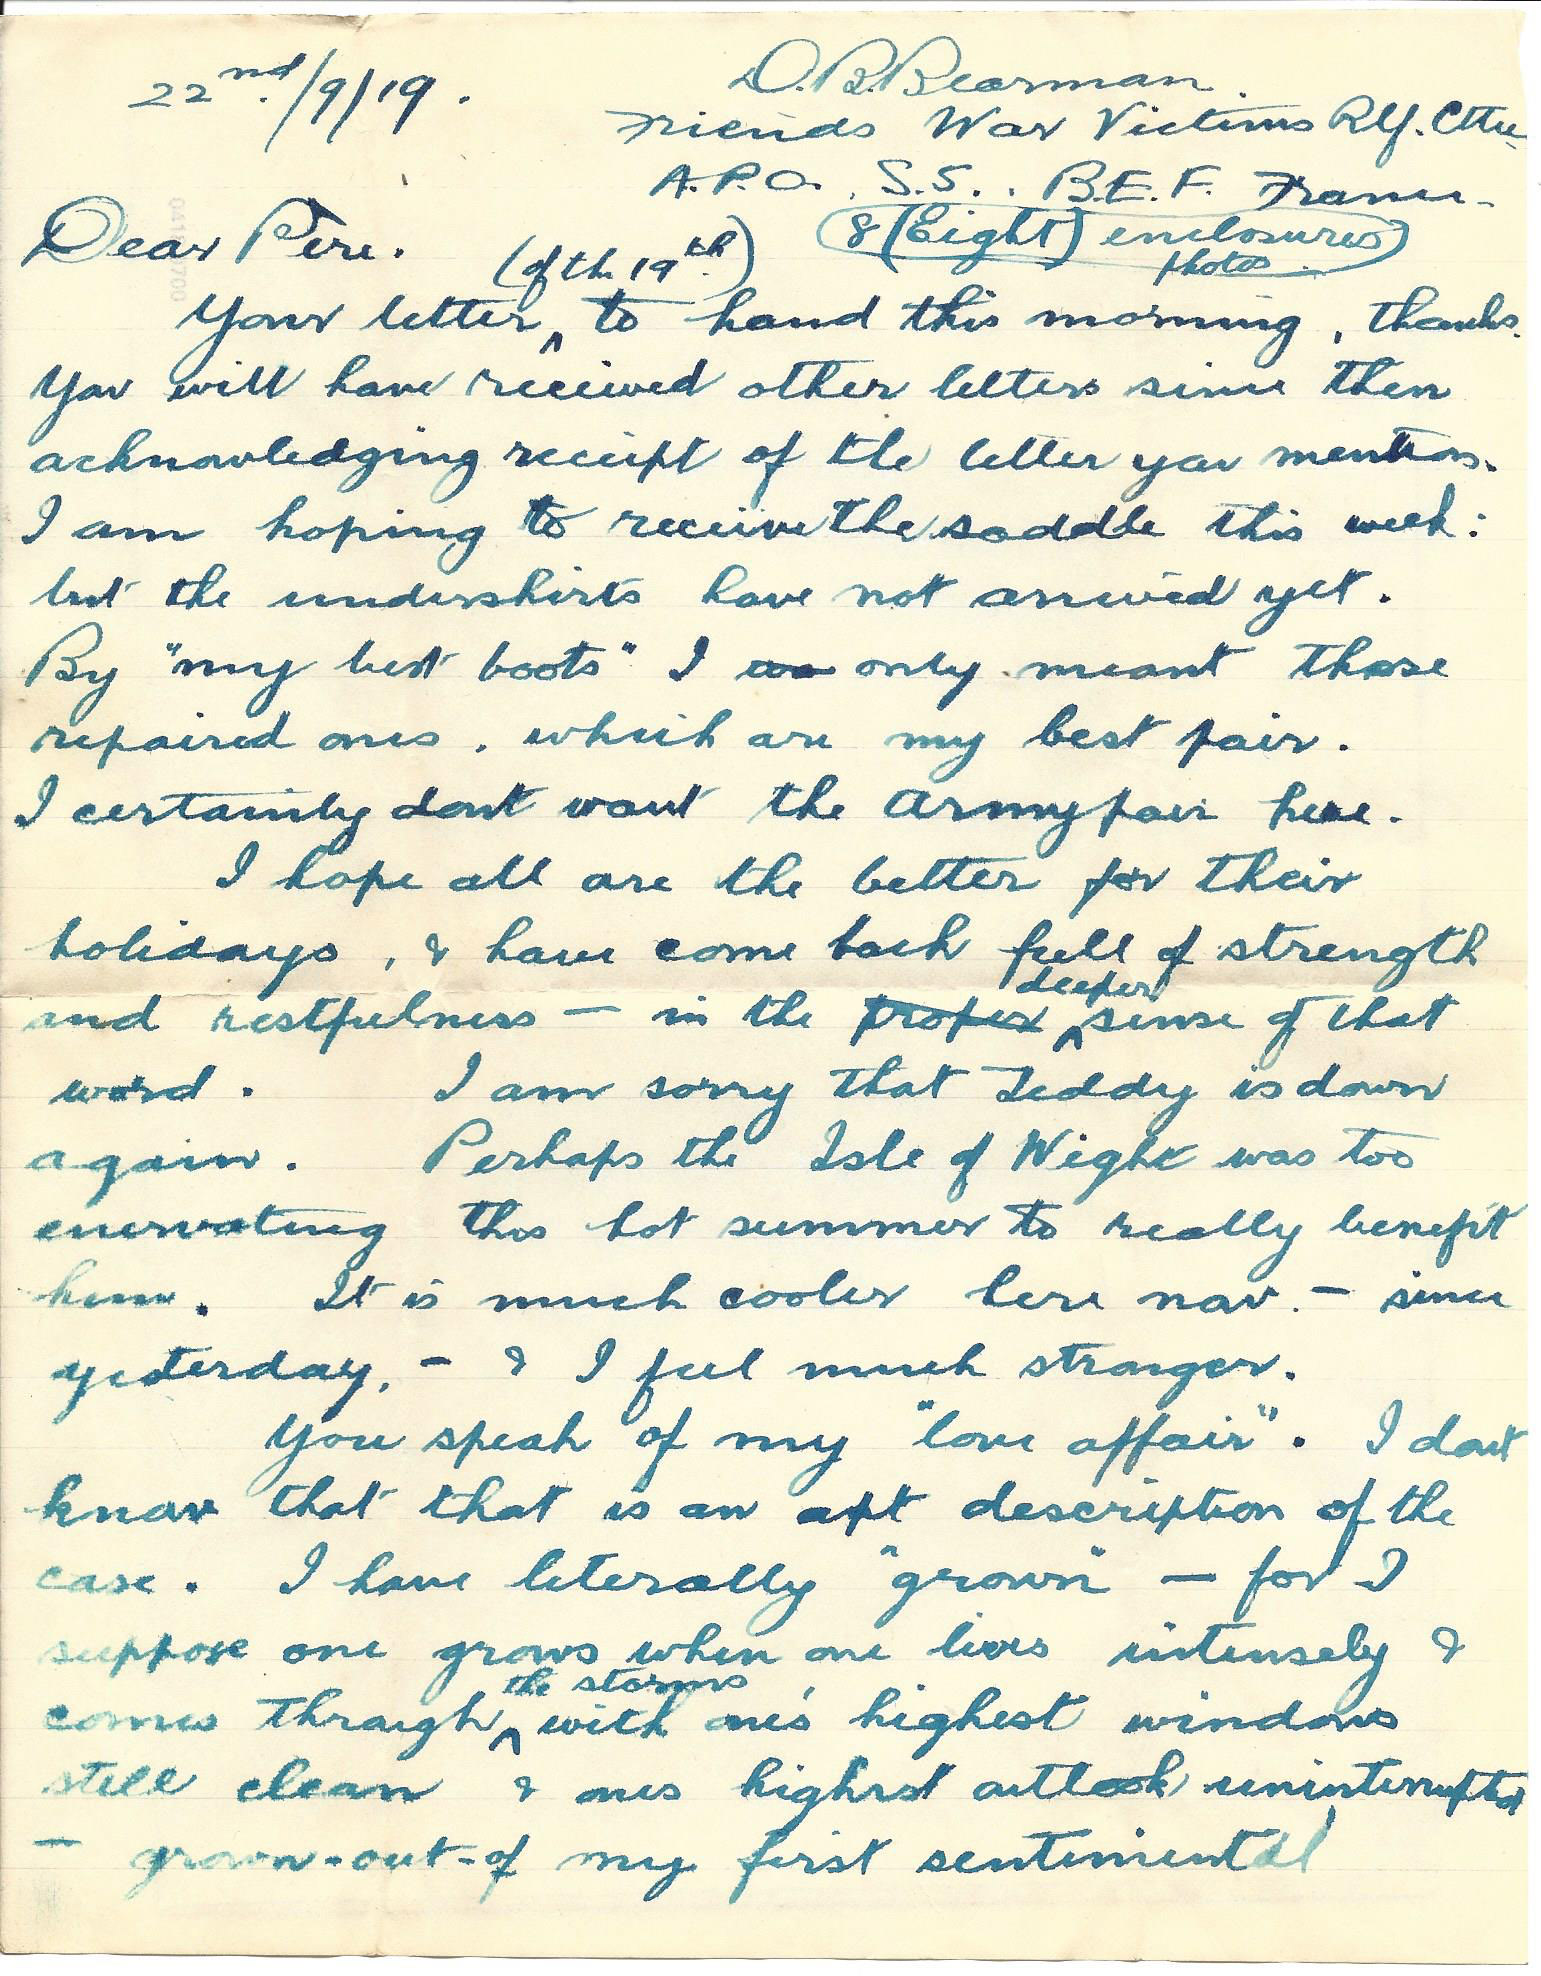 22nd./9/19.
D. B. Bearman.
Friends War Victims Rlf. Cttee
A.P.O., S.5.. B.E.F. France.
8 (Eight) enclosures
photos.
Dear Père.
(of the 19th.)
Your letter ^ to hand this morning, thanks.
You will have received other letters since then
acknowledging receipt of the letter you mention.
I am hoping to receive the saddle this week:
but the undershirts have not arrived yet.
By "my best boots" I only meant those
repaired ones, which are my best pair.
I certainly dont want the Army pair here.
I hope all are the better for their
holidays, & have come back full of strength
deeper
and restfulness — in the proper ^ sense of that
word. I am sorry that Teddy is down
again. Perhaps the Isle of Wight was too
enervating this hot summer to really benefit
him. It is much cooler here now. - since
yesterday, - & I feel much stronger.
You speak of my "love affair". I dont
know that that is an apt description of the
case. I have literally "grown" — for I
suppose one grows when one lives intensely &
the storms
comes through ^ with one's highest windows
still clean & ones highest outlook uninterrupted
— grown-out-of my first sentimental